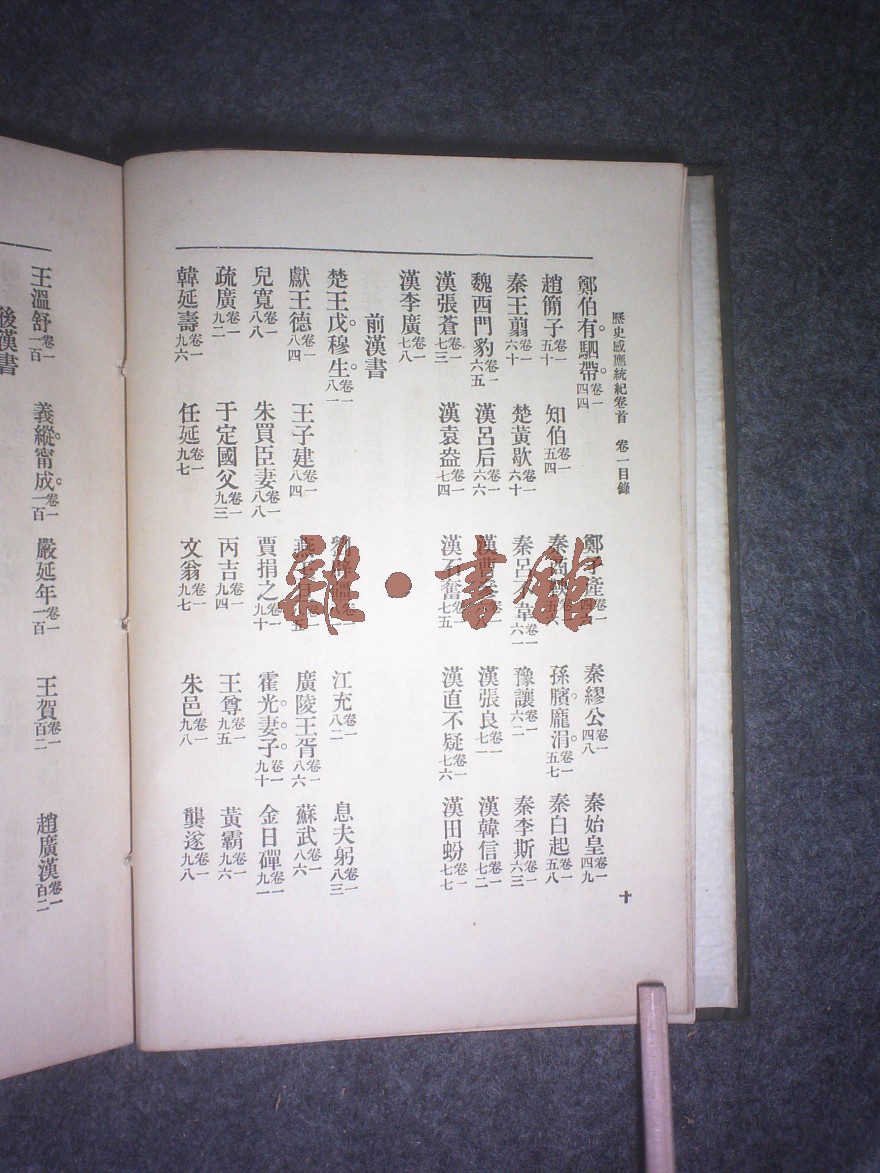 歷史感應統紀卷首 卷一目錄 十
鄭伯有。駟帶。卷一四四 鄭子產卷一四六 秦繆公卷一四八 秦始皇卷一四九
趙簡子卷一五十 知伯卷一五四 孫臏。龐涓。卷一五七 秦白起卷一五八
秦王翦卷一六十 楚黃歇卷一六十 秦呂不韋卷一六一 豫讓卷一六二 秦李斯卷一六三
魏西門豹卷一六五 漢呂后卷一六六 漢張良卷一七一 漢韓信卷一七二
漢張蒼卷一七三 漢袁盎卷一七四 漢石奮卷一七五 漢直不疑卷一七六 漢田蚡卷一七七
漢李廣卷一七八
前漢書
楚王戊。穆生。卷一八一 江充卷一八二 息夫躬卷一八三
獻王德卷一八四 王子建卷一八四 廣陵王胥卷一八六 蘇武卷一八六
兒寬卷一八八 朱買臣妻卷一八八 賈捐之卷一九十 霍光。妻。子。卷一九十 金日磾卷一九一
疏廣卷一九二 于定國父卷一九三 丙吉卷一九四 王尊卷一九五 黃霸卷一九六
韓延壽卷一九六 任延卷一九七 文翁卷一九七 朱邑卷一九八 龔遂卷一九八
王溫舒卷一一百 義縱。甯成。卷一一百 嚴延年卷一一百 王賀卷一百二 趙廣漢卷一百二
後漢書
雜·書館